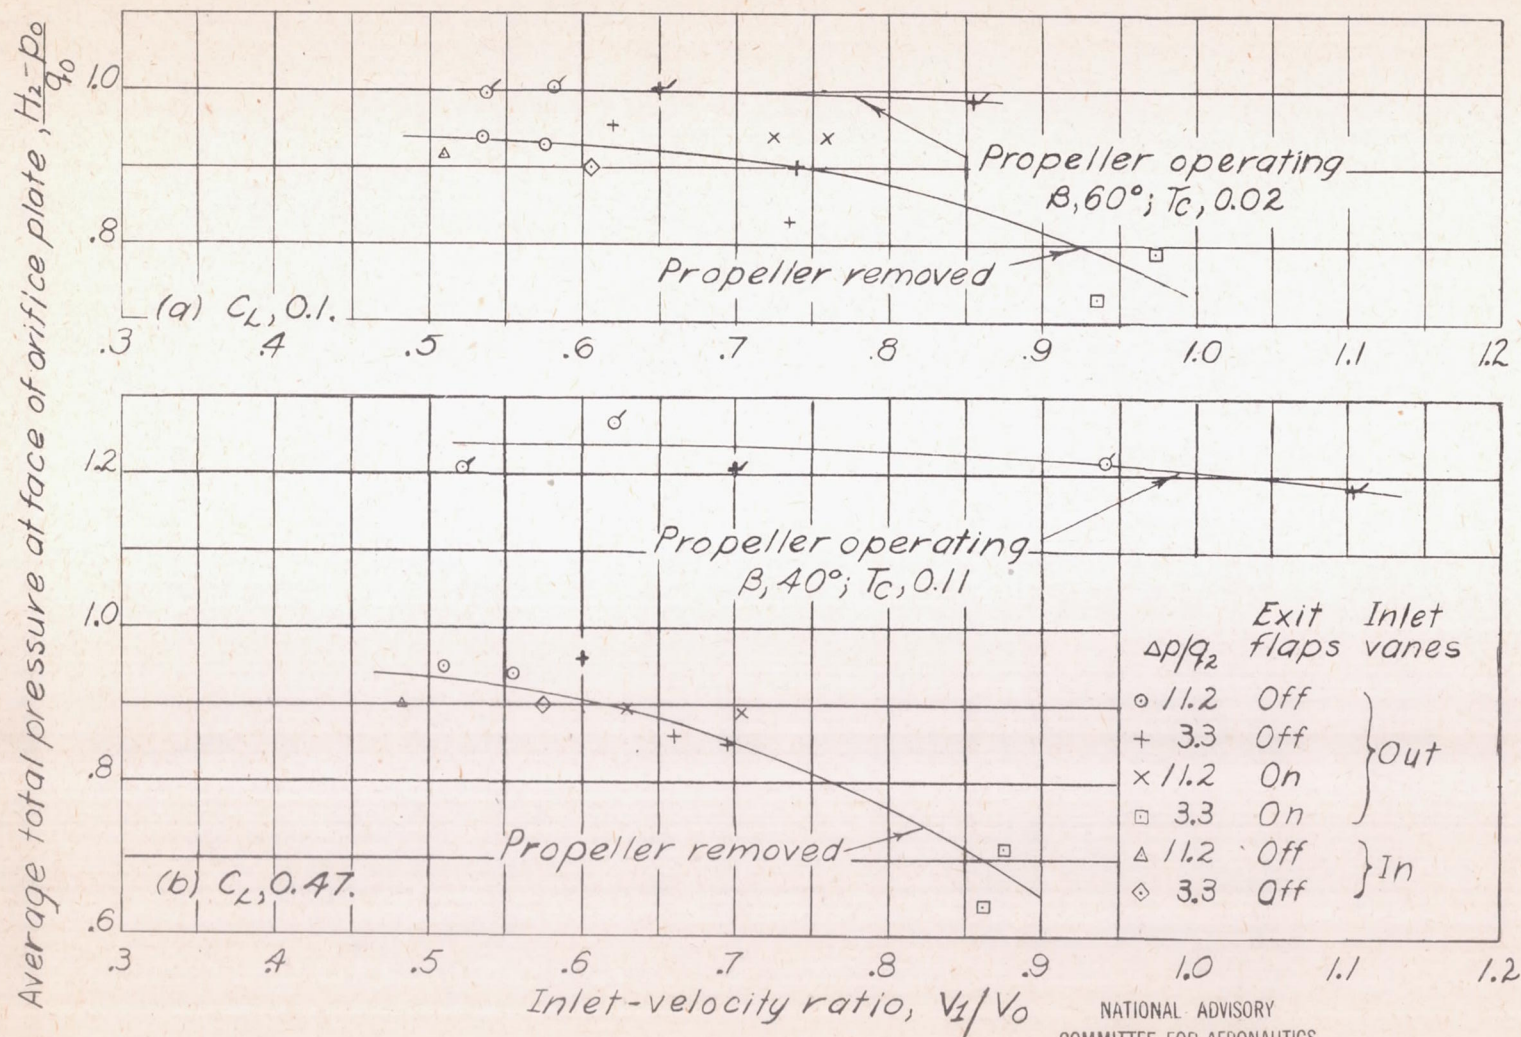 Average total pressure at face of orifice plate, H₂-p₀/q₀
1.0
.8
Propeller operating
β, 60°; Tc, 0.02
Propeller removed
(a) C_L, 0.1.
.3 .4 .5 .6 .7 .8 .9 1.0 1.1 1.2
1.2
1.0
.8
.6
Propeller operating
β, 40°; Tc, 0.11
Propeller removed
(b) C_L, 0.47.
Exit Inlet
Δp/q₂ flaps vanes
11.2 Off
3.3 Off
11.2 On
3.3 On
Out
11.2 Off
3.3 Off
In
.3 .4 .5 .6 .7 .8 .9 1.0 1.1 1.2
Inlet-velocity ratio, V₁/V₀
NATIONAL ADVISORY
COMMITTEE FOR AERONAUTICS